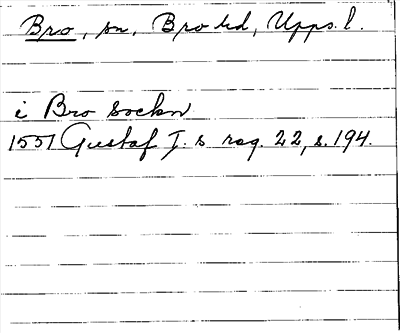 Bro, sn, Bro hd, Upps. l.
i Bro Sockn
1551 Gustaf I. s reg. 22, s. 194.